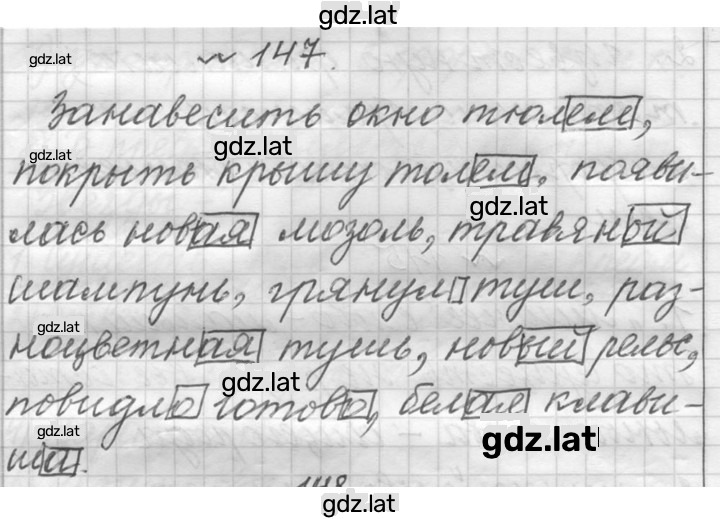 gdz.lat
gdz.lat № 147.
Занавесить окно тюлем,
gdz.lat gdz.lat
покрыть крышу толем, появи-
gdz.lat
лась новая мозоль, травяной
шампунь, грянул туш, раз-
gdz.lat
ноцветная тушь, новый рельс,
gdz.lat
повидло готово, белая клави-
gdz.lat gdz.lat
ша.
148
gdz.lat